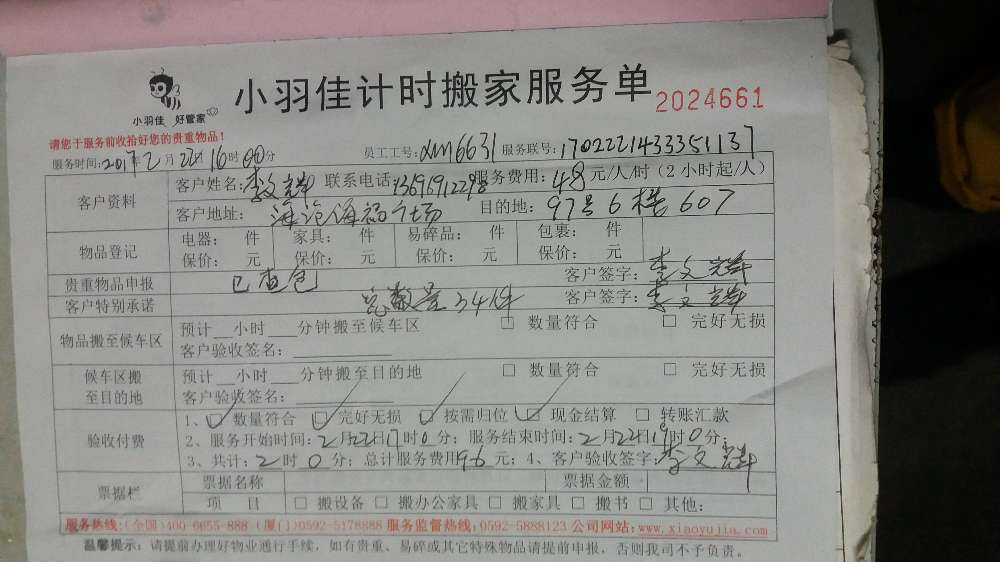 小羽佳计时搬家服务单 2024661
小羽佳 好管家
请您于服务前收拾好您的贵重物品!
服务时间:2017年2月22日16时00分 员工工号:XM6631 服务联号:1702221433351137
客户资料
客户姓名:李文辉 联系电话:13696912298 服务费用:48元/人/时(2小时起/人)
客户地址:海沧海福广场 目的地:97号6楼607
物品登记
电器: 件 家具: 件 易碎品: 件 包裹: 件
保价: 元 保价: 元 保价: 元 保价: 元
贵重物品申报 已查包 客户签字:李文辉
客户特别承诺 总数量34件 客户签字:李文辉
物品搬至候车区
预计__小时___分钟搬至候车区 □ 数量符合 □ 完好无损
客户验收签名:
候车区搬至目的地
预计__小时___分钟搬至目的地 □ 数量符合 □ 完好无损
客户验收签名:
验收付费
1、☑数量符合 ☑完好无损 ☑按需归位 ☑现金结算 □ 转账汇款
2、服务开始时间:2月22日17时0分;服务结束时间:2月22日19时0分;
3、共计:2时0分;总计服务费用96元;4、客户验收签字:李文辉
票据栏
票据名称 票据金额
项 目 □ 搬设备 □ 搬办公家具 □ 搬家具 □ 搬书 □ 其他:
服务热线:(全国)400-6655-888 (厦门)0592-5178888 服务监督热线:0592-5888123 公司网站:www.xiaoyujia.com
温馨提示:请提前办理好物业通行手续,如有贵重、易碎或其它特殊物品请提前申报,否则我司不予负责。